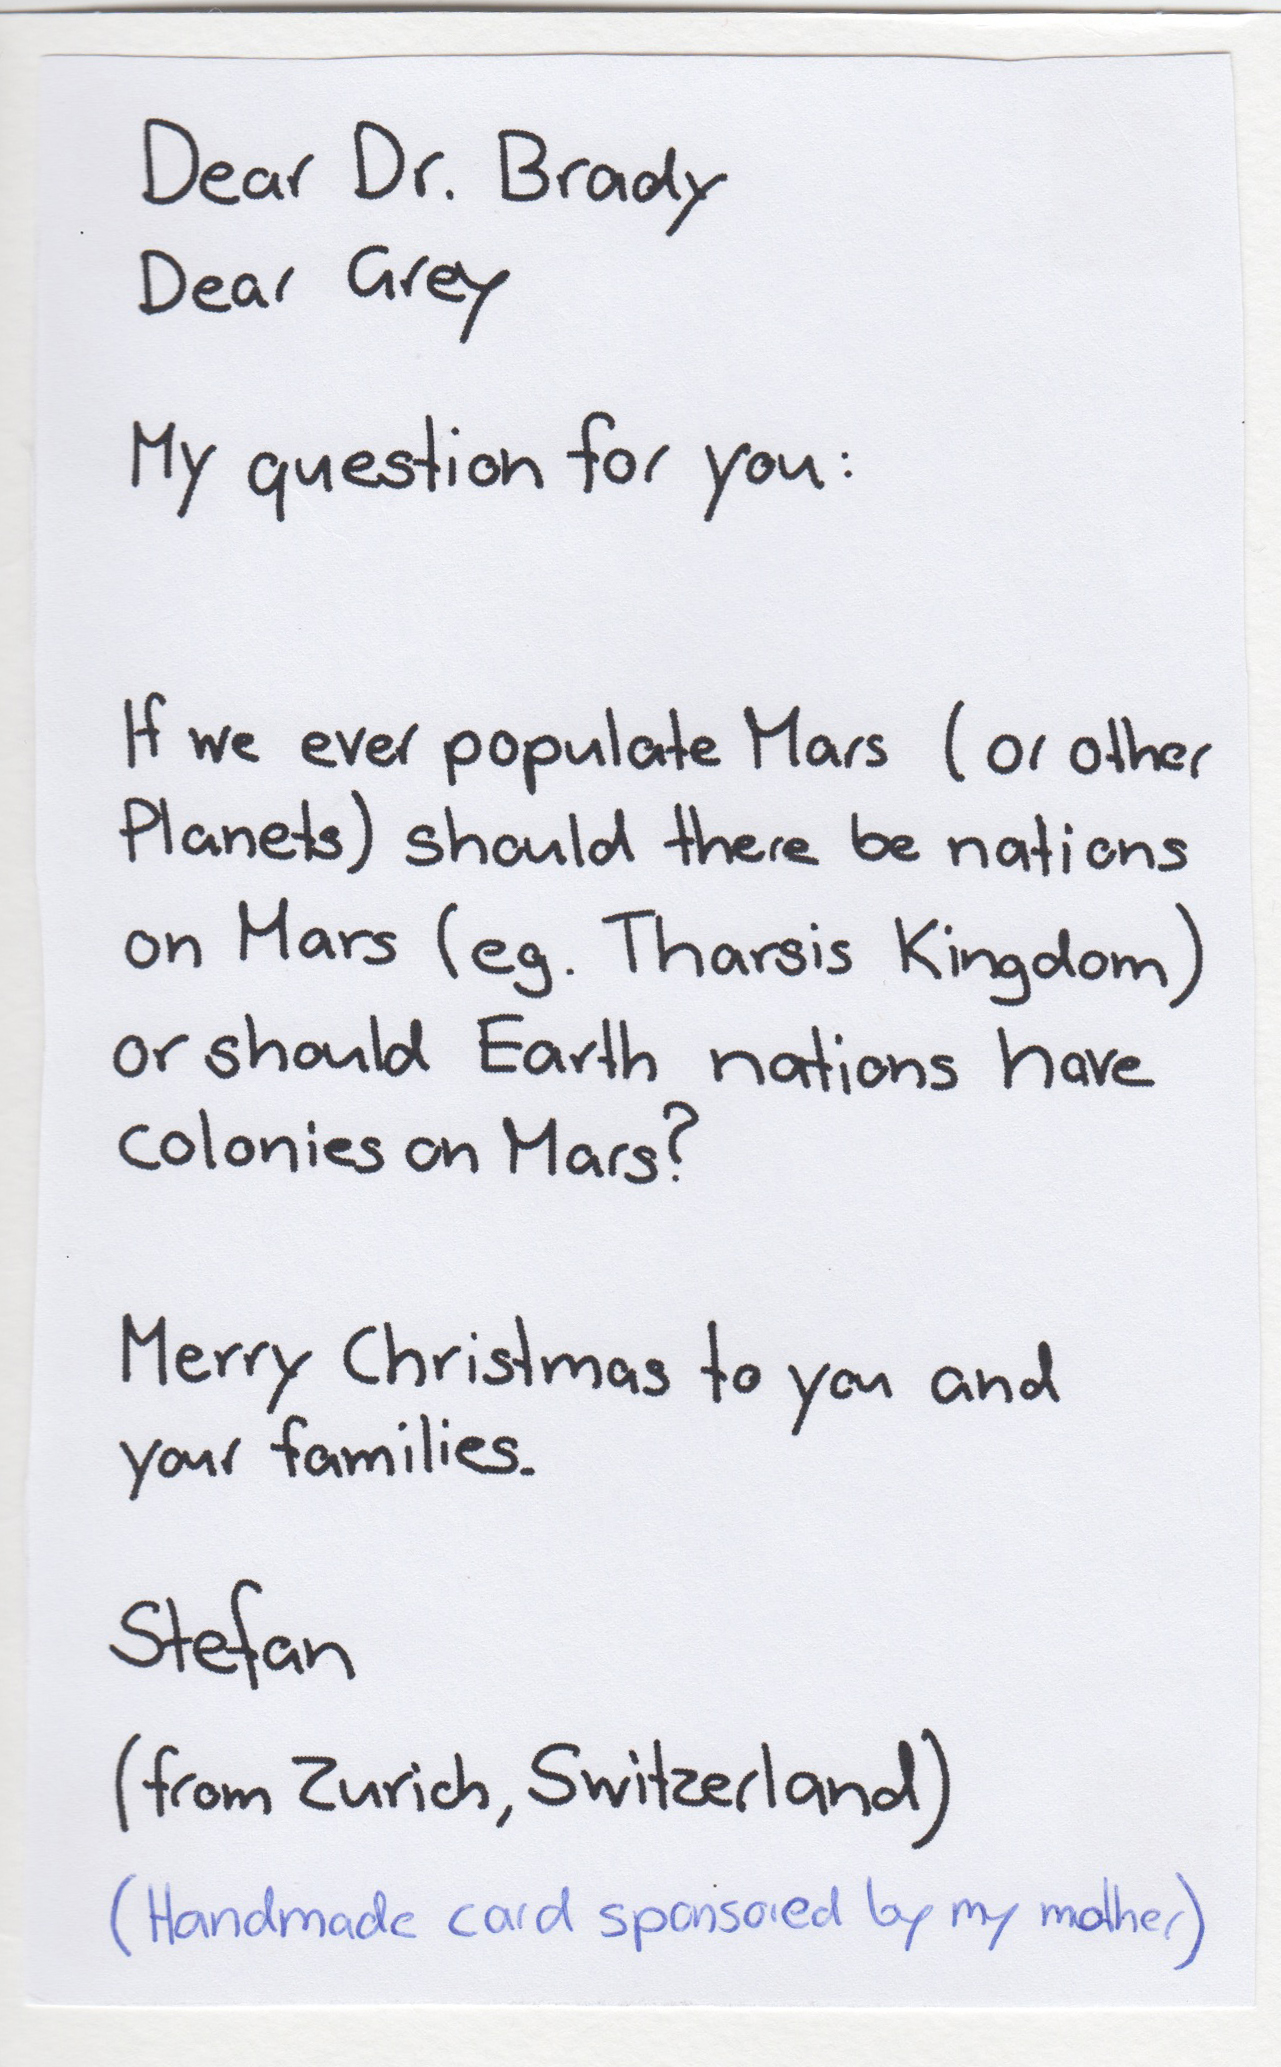 Dear Dr. Brady
Dear Grey
My question for you:
If we ever populate Mars (or other
Planets) should there be nations
on Mars (eg. Tharsis Kingdom)
or should Earth nations have
colonies on Mars?
Merry Christmas to you and
your families.
Stefan
(from Zurich, Switzerland)
(Handmade card sponsored by my mother)